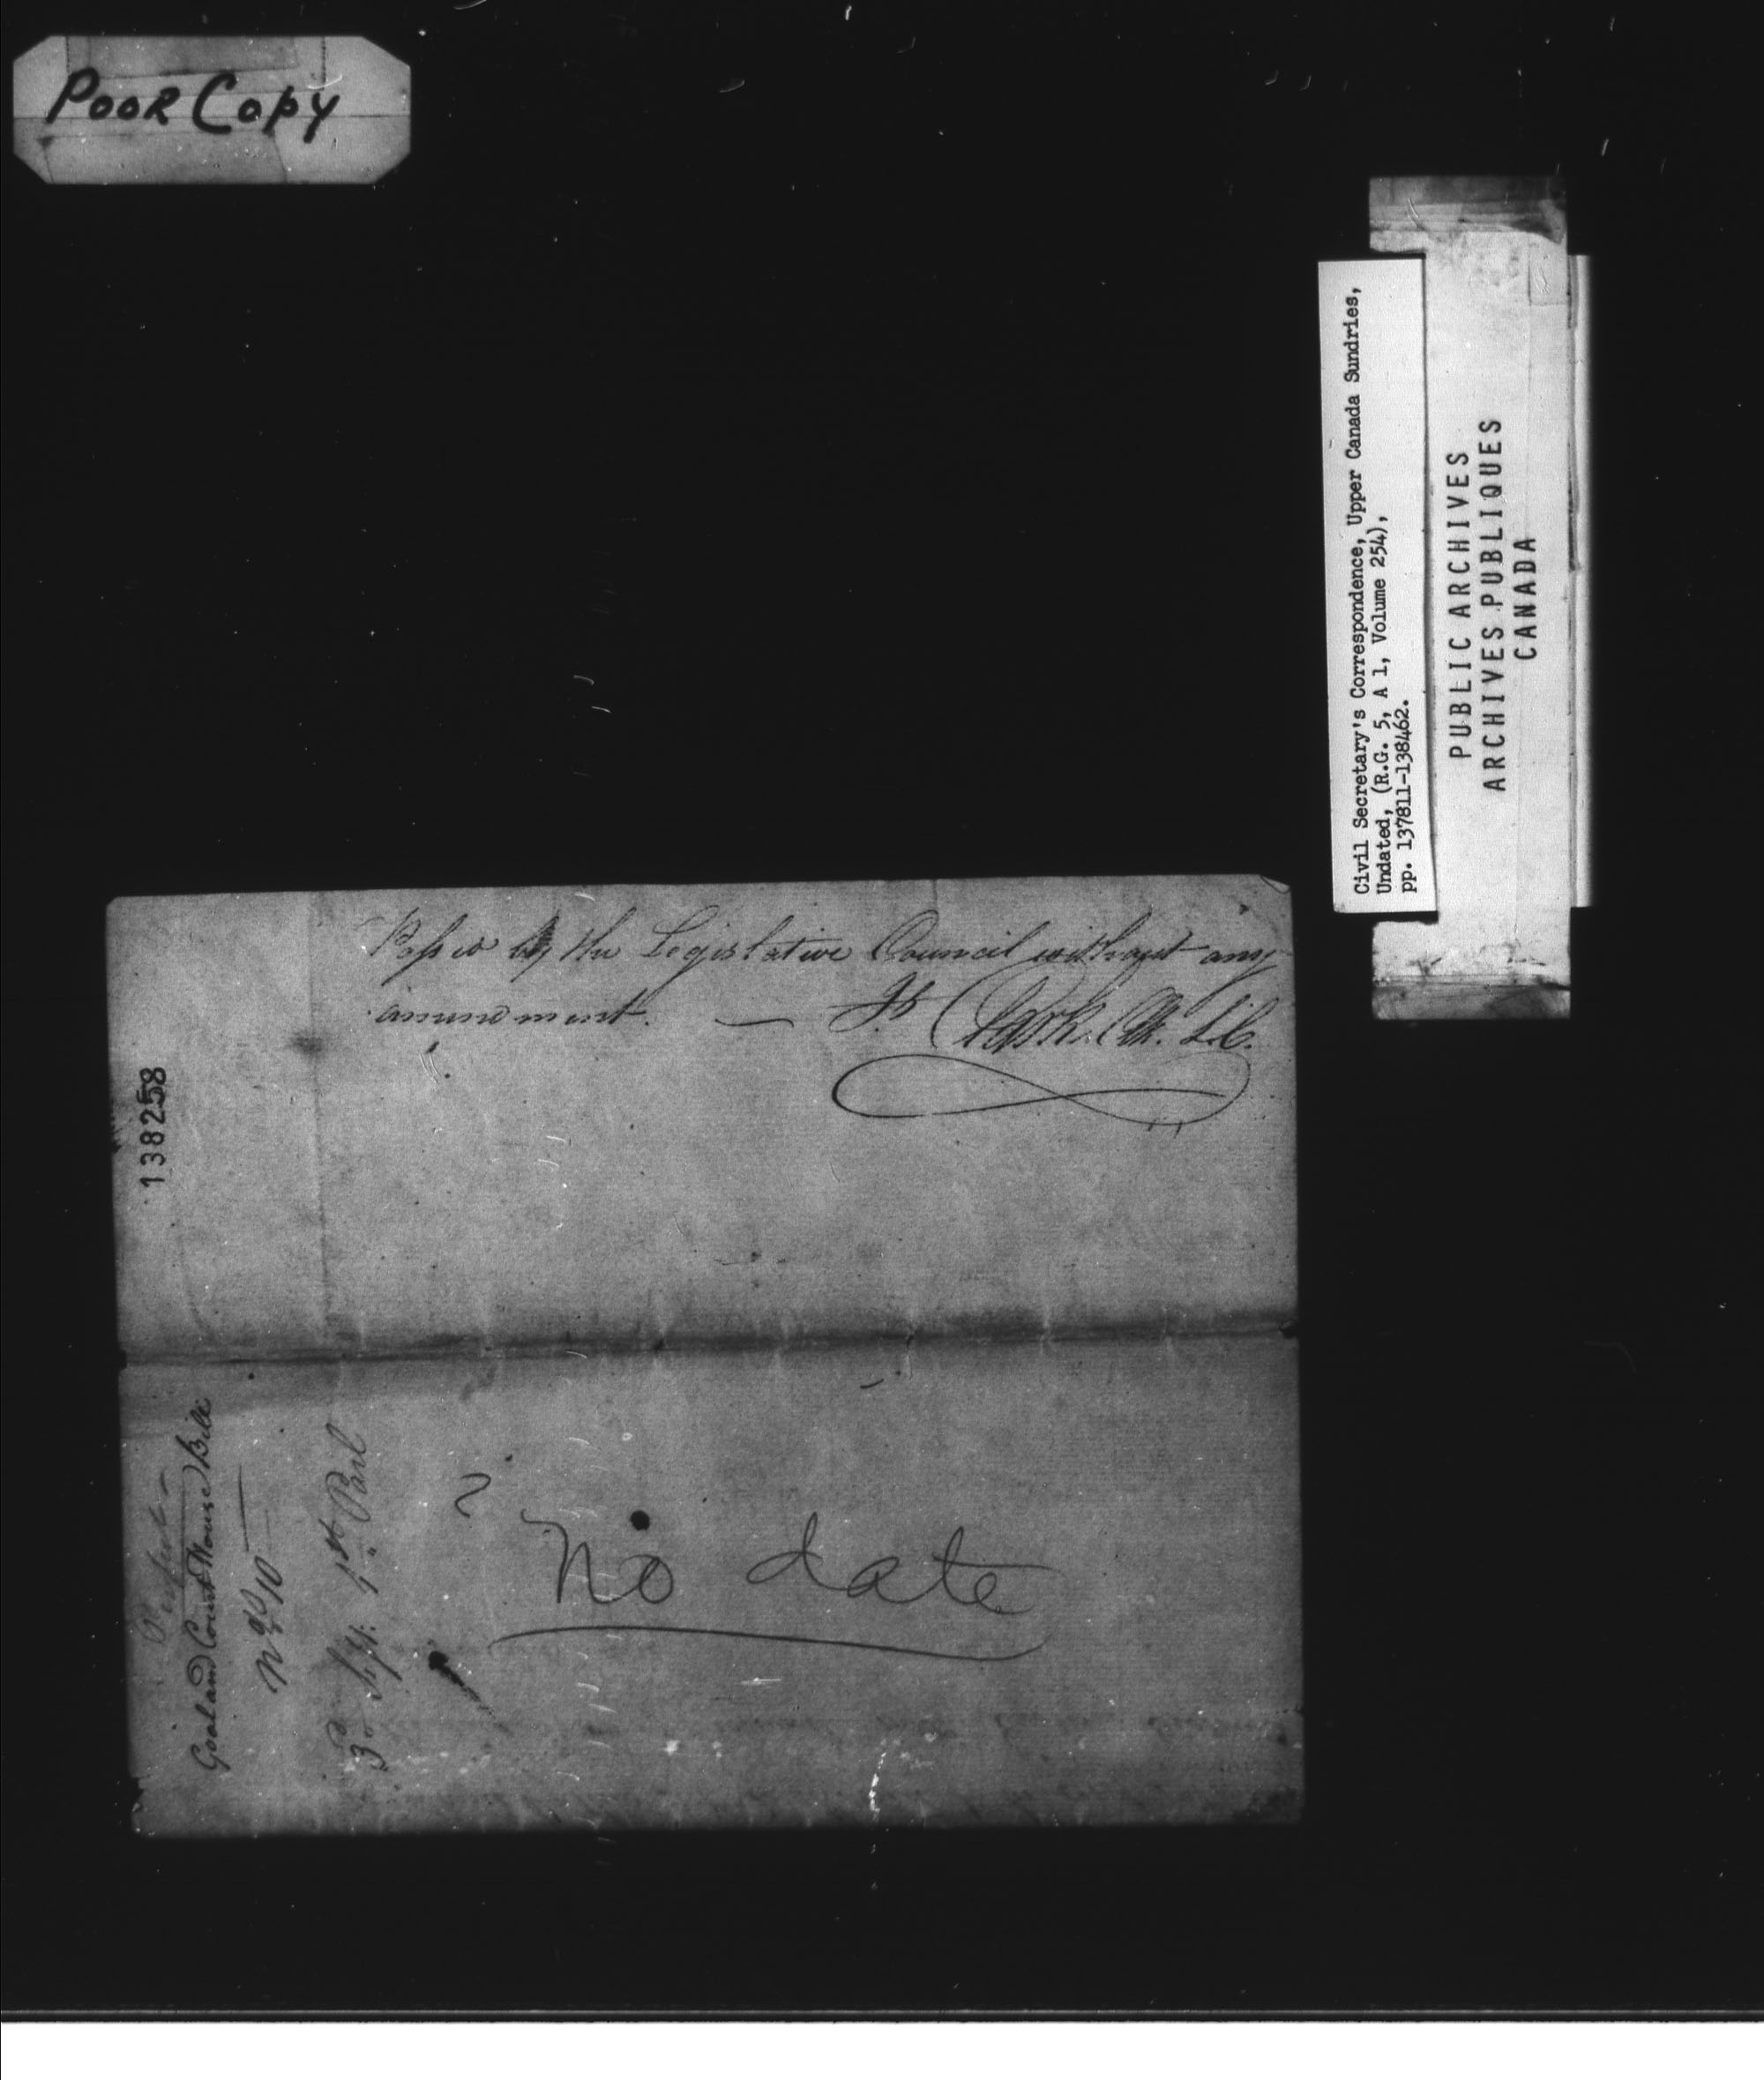 Poor Copy
Civil Secretary's Correspondence, Upper Canada Sundries,
Undated, (R.G. 5, A 1, Volume 254),
pp. 137811-138462.
PUBLIC ARCHIVES
ARCHIVES PUBLIQUES
CANADA
Passed by the Legislative Council without any
amendment. — Clark. L.C.
138258
Gaol and Court House Bill
No 10
3d 1st Parl
No date